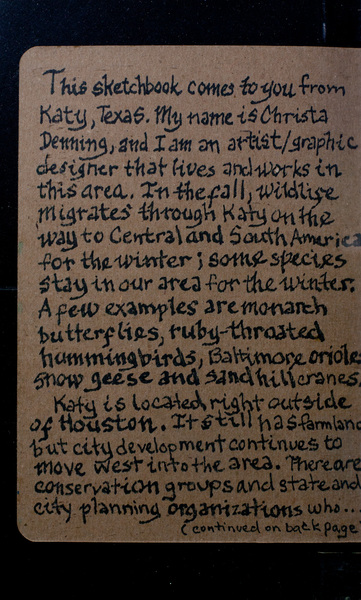 This sketchbook comes to you from
Katy, Texas. My name is Christa
Denning, and I am an artist/graphic
designer that lives and works in
this area. In the fall, wildlife
migrates through Katy on the
way to Central and South America
for the winter; some species
stay in our area for the winter.
A few examples are monarch
butterflies, ruby-throated
hummingbirds, Baltimore orioles
snow geese and sandhill cranes.
Katy is located right outside
of Houston. It still has farmland
but city development continues to
move west into the area. There are
conservation groups and state and
city planning organizations who...
(continued on back page